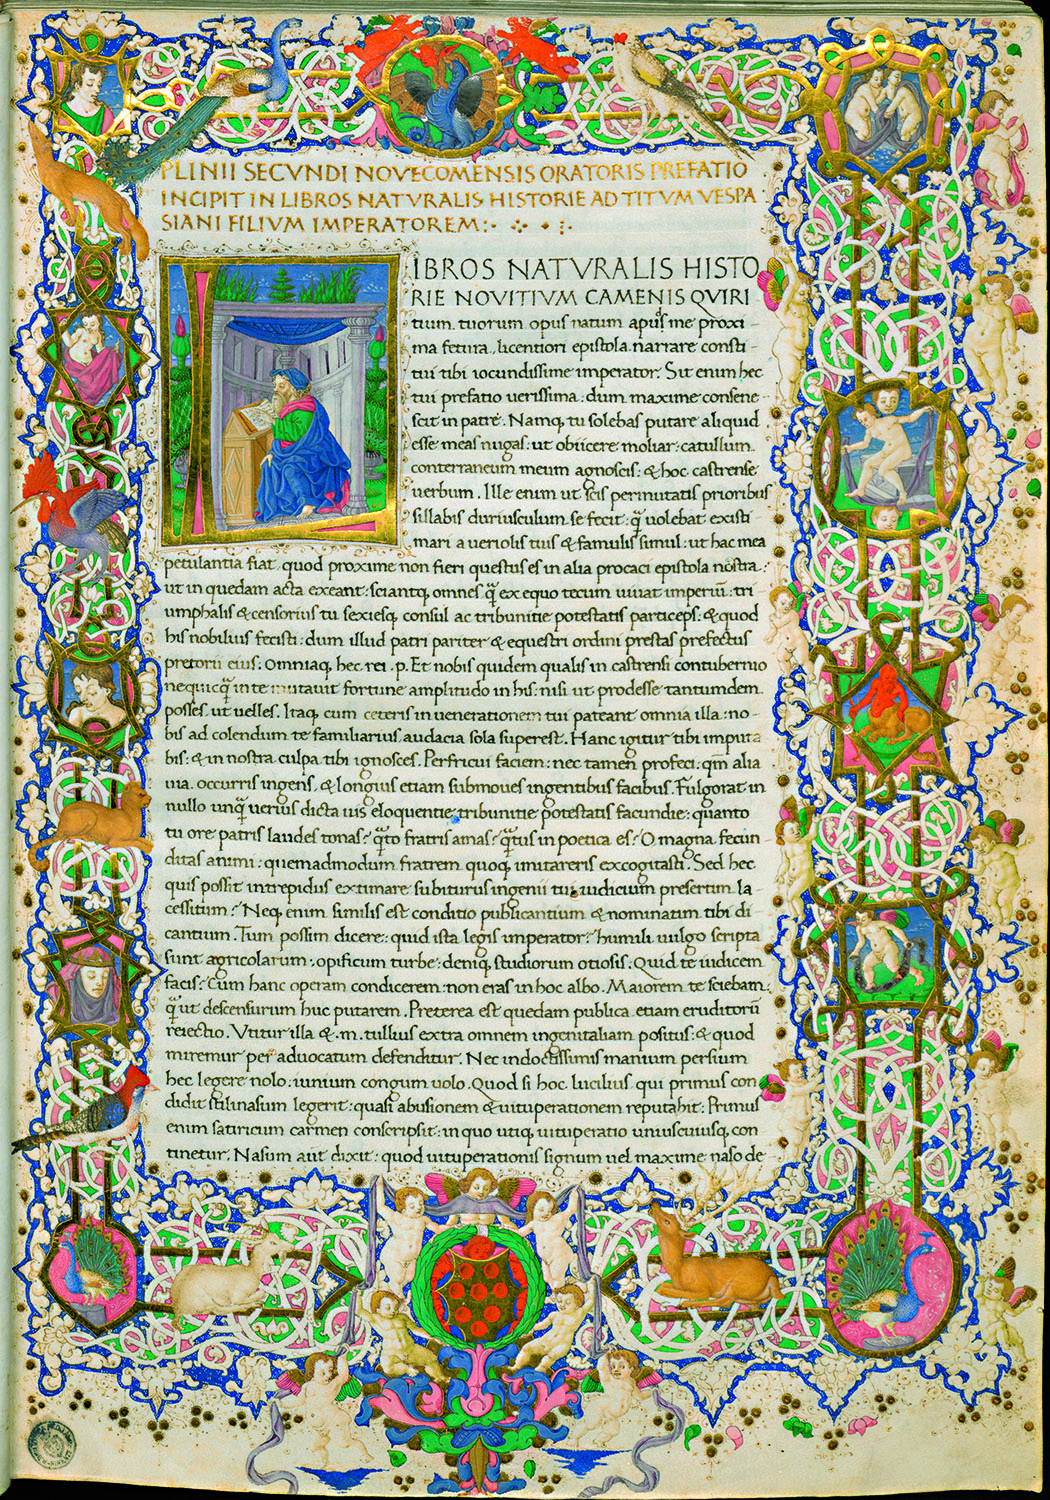 3
PLINII SECVNDI NOVECOMENSIS ORATORIS PREFATIO
INCIPIT IN LIBROS NATVRALIS HISTORIE AD TITVM VESPA
SIANI FILIVM IMPERATOREM:
LIBROS NATVRALIS HISTO
RIE NOVITIVM CAMENIS QVIRI
tium tuorum opus natum apud me proxi-
ma fetura, licentiori epistola narrare consti-
tui tibi iocundissime imperator. Sit enim hec
tui prefatio verissima: dum maxime consene-
scit in patre. Namq; tu solebas putare aliquid
esse meas nugas: ut obiicere moliar: catullum
conterraneum meum agnoscis: & hoc castrense
uerbum. Ille enim ut scis permutatis prioribus
sillabis duriusculum se fecit: q̃ uolebat existi
mari a ueriolis tuis & famulis simul: ut hac mea
petulantia fiat quod proxime non fieri questus es in alia procaci epistola nostra:
ut in quedam acta exeant: sciantq; omnes q̃ ex equo tecum uiuat imperiũ: tri
umphalis & censorius tu sexiesq; consul ac tribunitie potestatis particeps: & quod
his nobilius fecisti: dum illud patri pariter & equestri ordini prestas prefectus
pretorii eius: Omniaq; hec rei .p. Et nobis quidem qualis in castrensi contubernio
nequicq̃ in te mutauit fortune amplitudo in his: nisi ut prodesse tantumdem
posses, ut uelles. Itaq; cum ceteris in uenerationem tui pateant omnia illa: no-
bis ad colendum te familiarius audacia sola superest. Hanc igitur tibi imputa
bis: & in nostra culpa tibi ignosces. Perfricui faciem: nec tamen profeci: qm̃ alia
uia occurris ingens, & longius etiam submoues ingentibus facibus. Fulgorat in
nullo unq̃ uerius dicta uis eloquentie, tribunitie potestatis facundie: quanto
tu ore patris laudes tonas? q̃to fratris amas? q̃tus in poetica es? O magna fecun
ditas animi: quemadmodum fratrem quoq; imitareris excogitasti. Sed hec
quis possit intrepidus extimare: subiturus ingenii tui iudicium presertim la-
cessitum? Neq; enim similis est conditio publicantium & nominatim tibi di-
cantium. Tum possim dicere: quid ista legis imperator? humili uulgo scripta
sunt agricolarum: opificum turbe: deniq; studiorum otiosis. Quid te iudicem
facis? Cum hanc operam condicerem: non eras in hoc albo. Maiorem te sciebam:
q̃ ut descensurum huc putarem. Preterea est quedam publica etiam eruditorũ
reiectio. Vtitur illa & .m. tullius extra omnem ingenii aliam positus: & quod
miremur per aduocatum defenditur. Nec indoctissimis manium persium
hec legere nolo: iunium congum uolo. Quod si hoc lucilius qui primus con
didit stili nasum legerit: quasi abusionem & uituperationem reputabit: Primus
enim satiricum carmen conscripsit: in quo utiq; uituperatio uniuscuiusq; con
tinetur. Nasum aut dixit: quod uituperationis signum uel maxime naso de